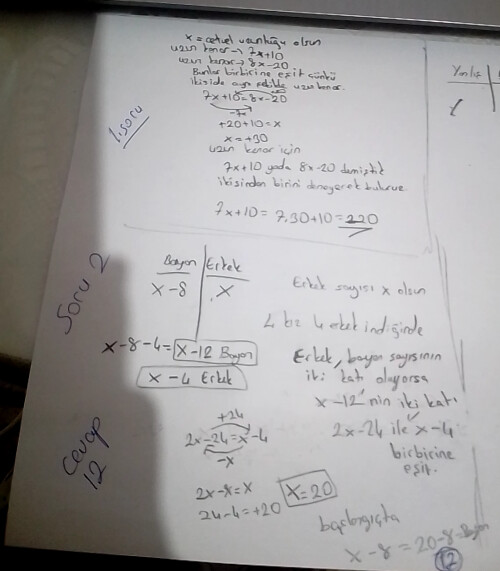 x = cetvel uzunluğu olsun
uzun kenar → 7x+10
uzun kenar → 8x-20
Bunlar birbirine eşit çünkü
ikiside aynı şekilde uzun kenar.
7x+10=8x-20
-7x
+20+10=x
x=+30
uzun kenar için
7x+10 yada 8x-20 demiştik
ikisinden birini deneyerek buluruz
7x+10= 7.30+10=220
1.soru
Yanlış
Soru 2
Bayan Erkek
x-8 x
Erkek sayısı x olsun
4 kız 4 erkek indiğinde
x-8-4= x-12 Bayan
x-4 Erkek
Erkek, bayan sayısının
iki katı oluyorsa
x-12'nin iki katı
2x-24 ile x-4
birbirine
eşit.
+24
2x-24=x-4
-x
2x-x=x
24-4=+20
x=20
Cevap
12
başlangıçta
x-8=20-8= Bayan
12